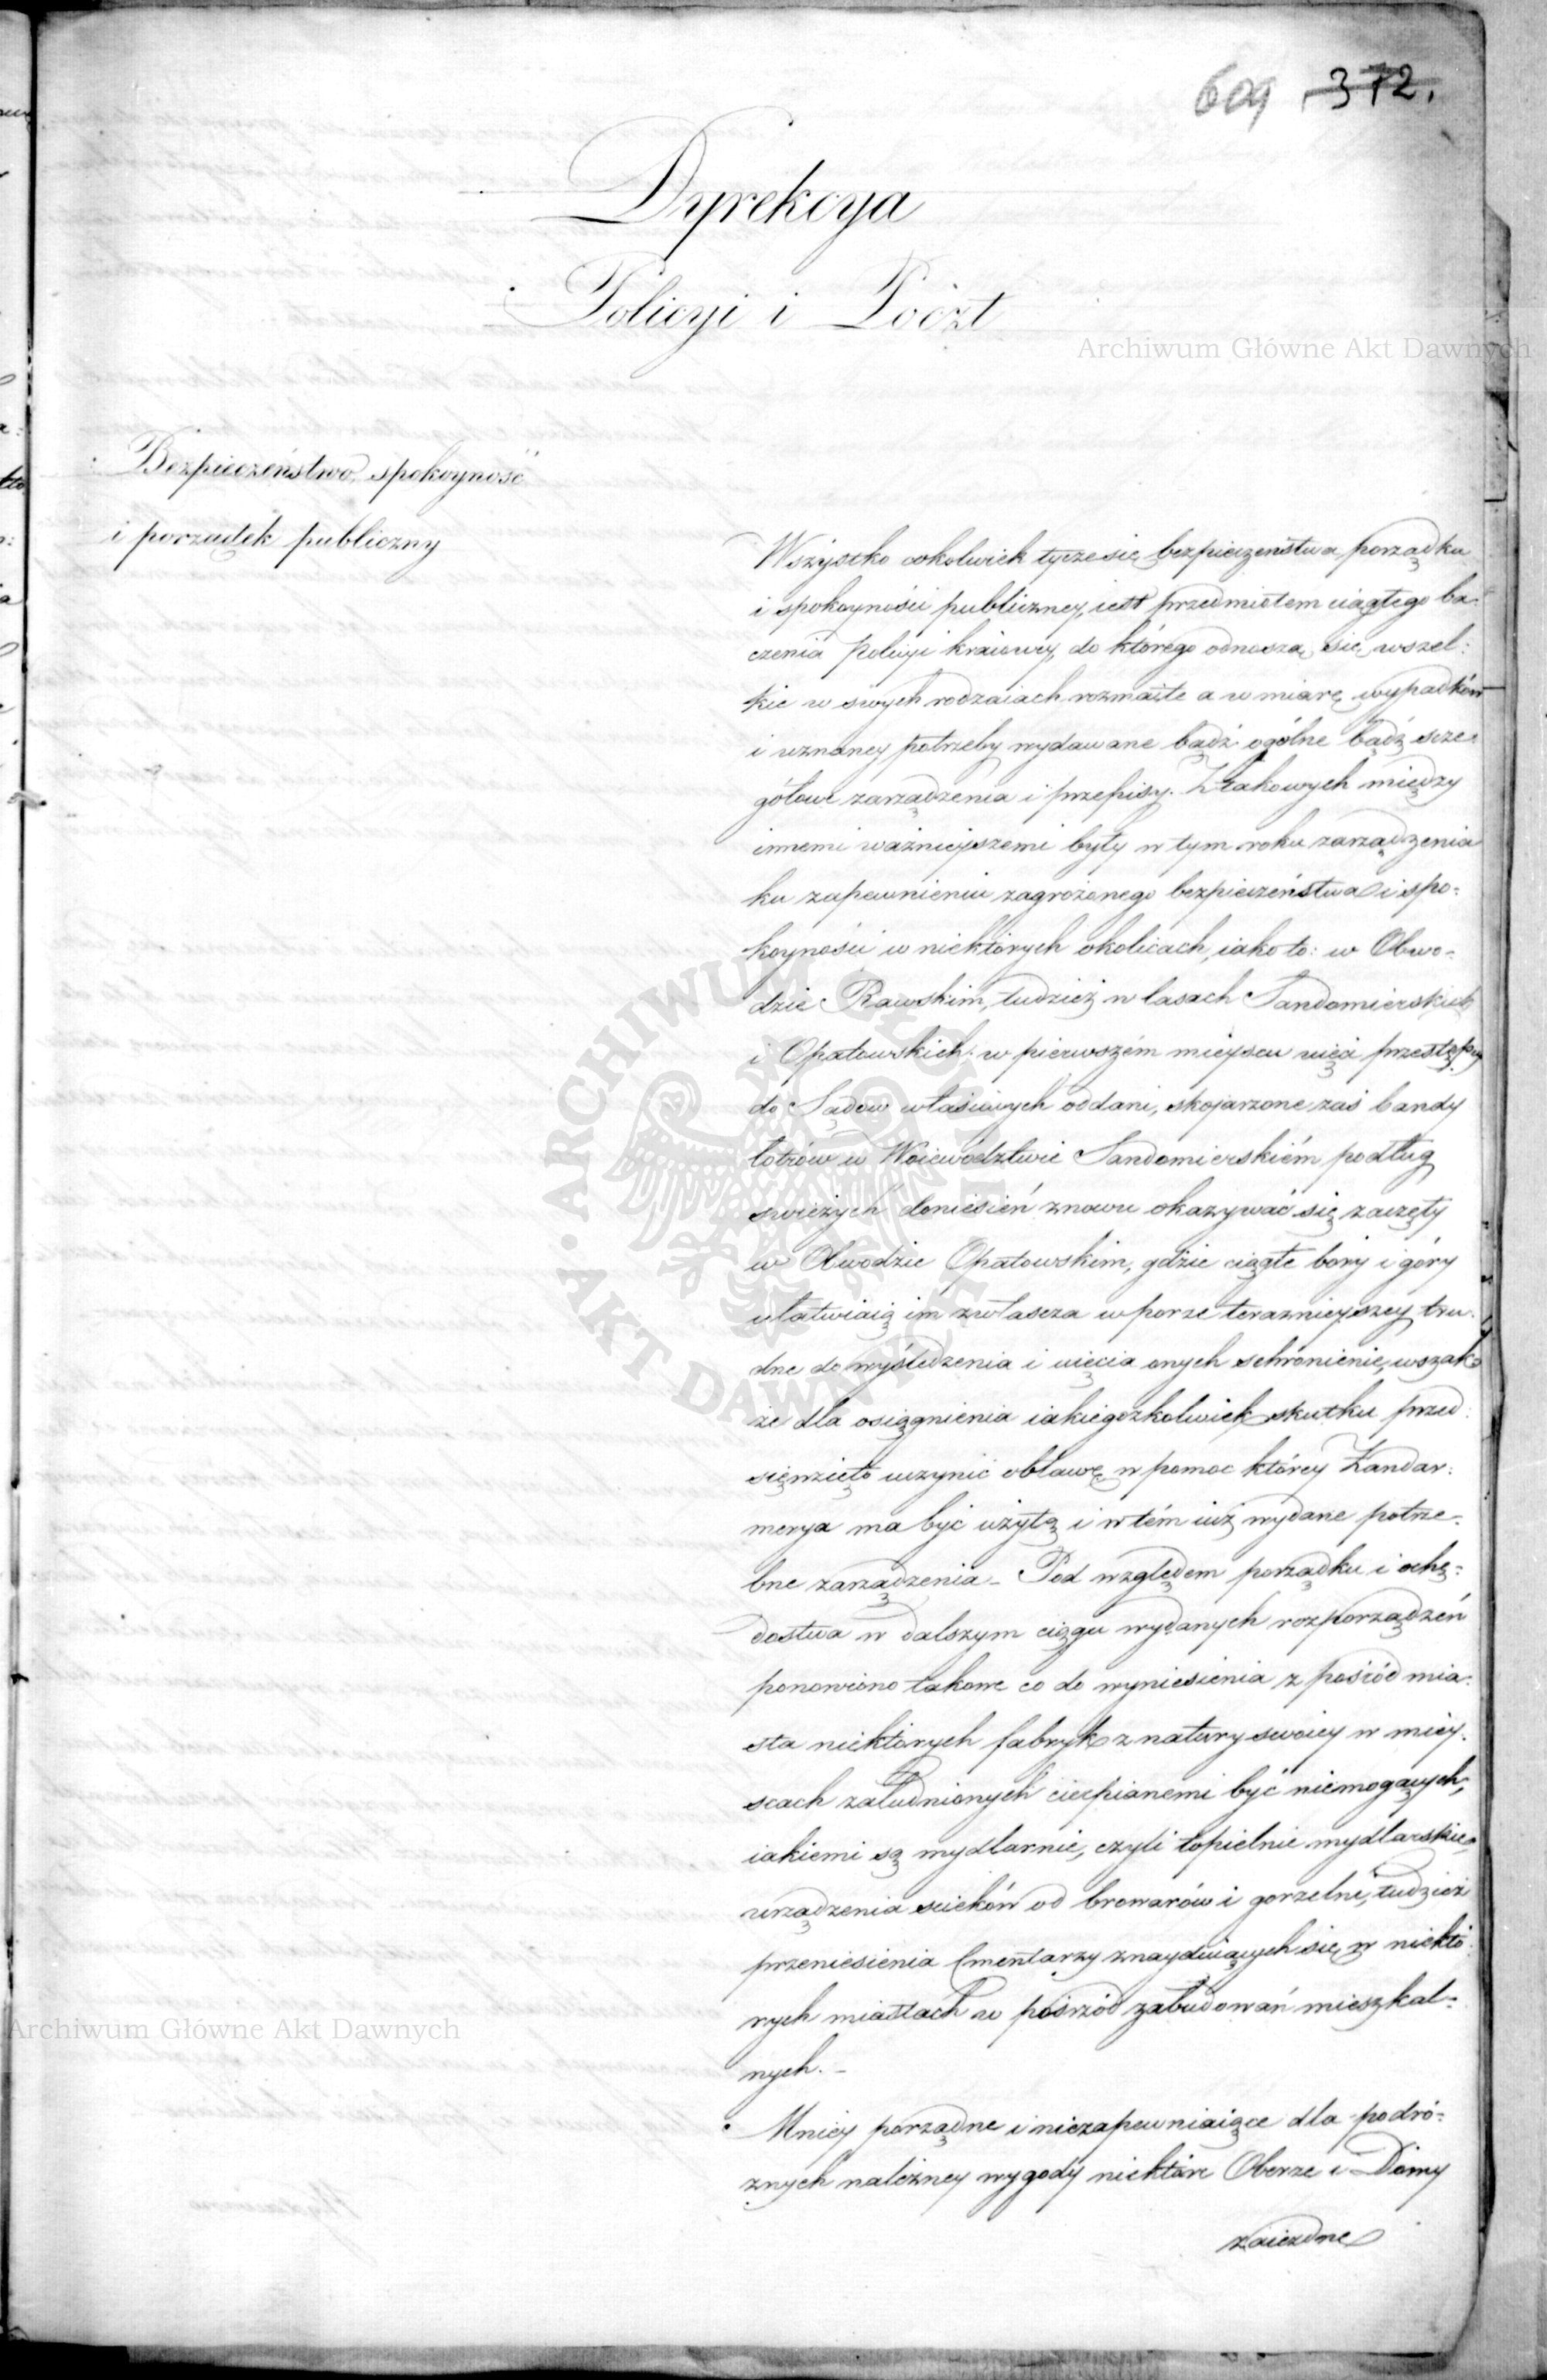 609 372.
Dyrekcya
Policyi i Poczt
Archiwum Główne Akt Dawnych
Bezpieczeństwo, spokoyność
i porządek publiczny
Wszystko cokolwiek tycze się bezpieczeństwa, porządku
i spokoyności publiczney, iest przedmiotem ciągłego ba:
czenia Policyi kraiowey, do którego odnoszą się wszel:
kie w swych rodzaiach rozmaite a w miarę wypadków
i uznaney potrzeby wydawane bądź ogólne bądź scze:
gółowe zarządzenia i przepisy. Z takowych między
innemi ważnieyszemi były w tym roku zarządzenia
ku zapewnieniu zagrożonego bezpieczeństwa i spo:
koyności w niektórych okolicach, iako to: w Obwo:
dzie Rawskim, tudzież w lasach Sandomierskich
i Opatowskich: w pierwszém mieyscu uięci przestępcy
do Sądow właściwych oddani, skojarzone zaś bandy
łotrów w Woiewództwie Sandomierskiém podług
swieżych doniesień znowu okazywać się zaczęły
w Obwodzie Opatowskim, gdzie ciągłe bory i góry
ułatwiaią im zwłascza w porze teraznieyszey tru:
dne do wyśledzenia i uięcia onych schronienie, wszak
że dla osiągnienia iakiegozkolwiek skutku przed:
sięwzięto uczynić obławę w pomoc którey Żandar:
merya ma być użytą i w tém iuż wydane potrze:
bne zarządzenia _ Pod względem porządku i ochę:
dostwa w dalszym ciągu wydanych rozporządzeń
ponowiono takowe co do wyniesienia z pośród mia:
sta niektórych fabryk z natury swoiey w miey:
scach zaludnionych cierpianemi być niemogących,
iakiemi są mydlarnie, czyli topielnie mydlarskie,
urządzenia scieków od browarów i gorzelni, tudzież
przeniesienia Cmentarzy znayduiących się w niektó
rych miastach w pośrzód zabudowań mieszkal:
nych. _
Archiwum Główne Akt Dawnych
Mniey porządne i niezapewniaiące dla podró:
znych należney wygody niektóre Oberze i Domy
zaiezdne
ARCHIWUM GŁÓWNE AKT DAWNYCH